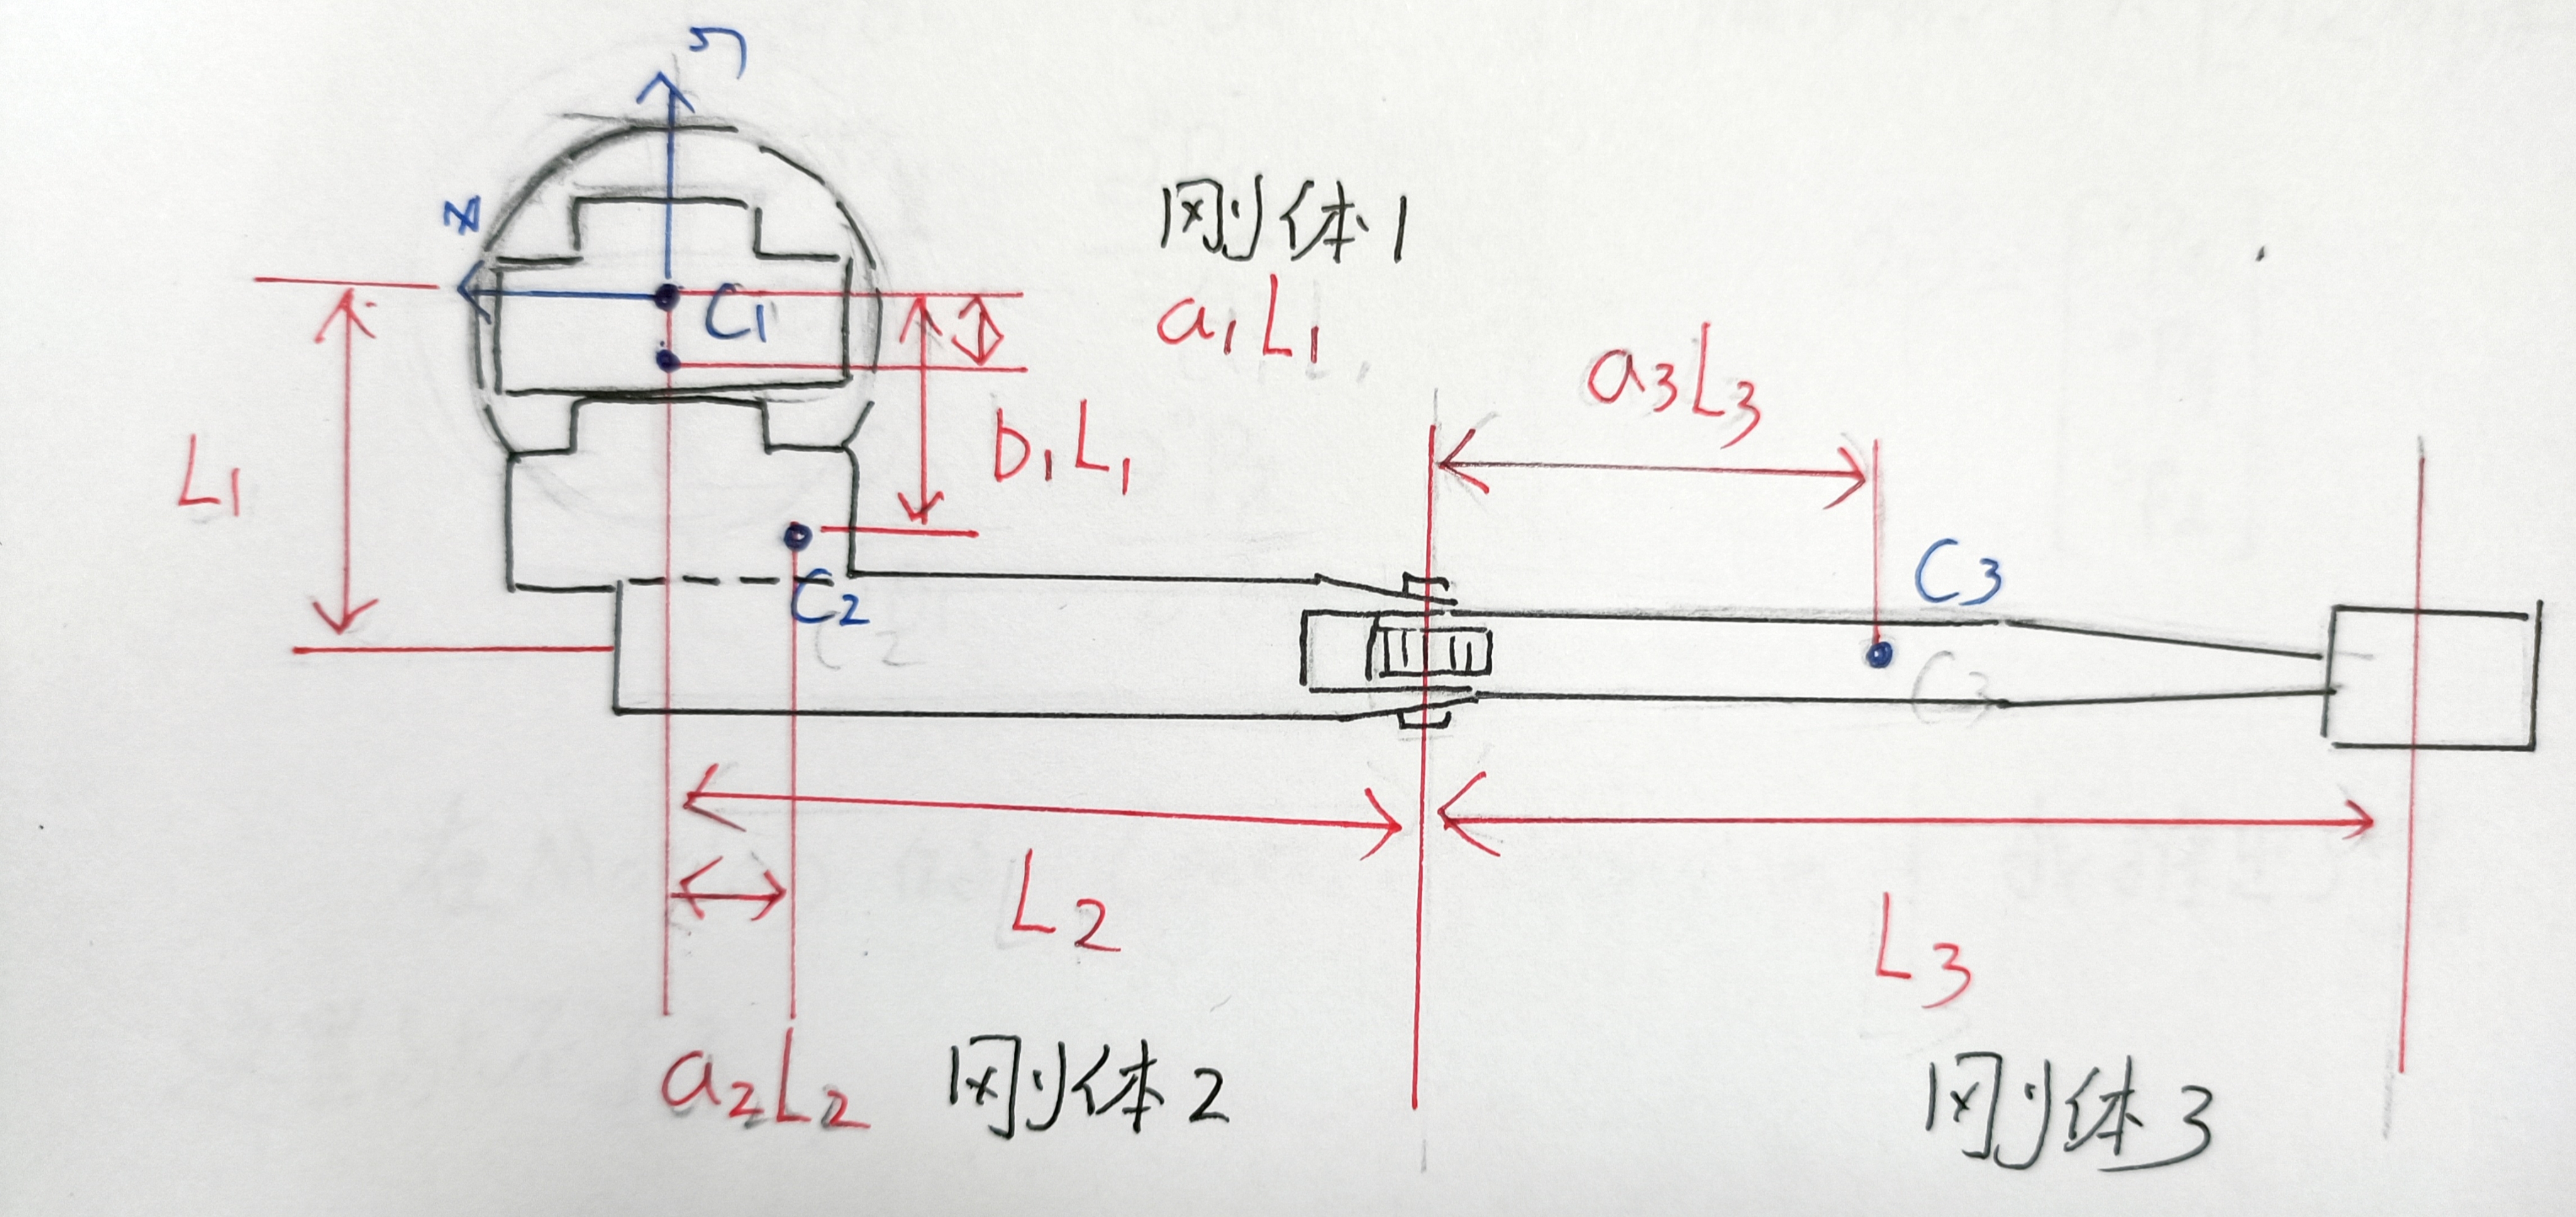 y
x
C1
刚体1
a1L1
L1
b1L1
a3L3
C2
C3
L2
L3
a2L2
刚体2
刚体3